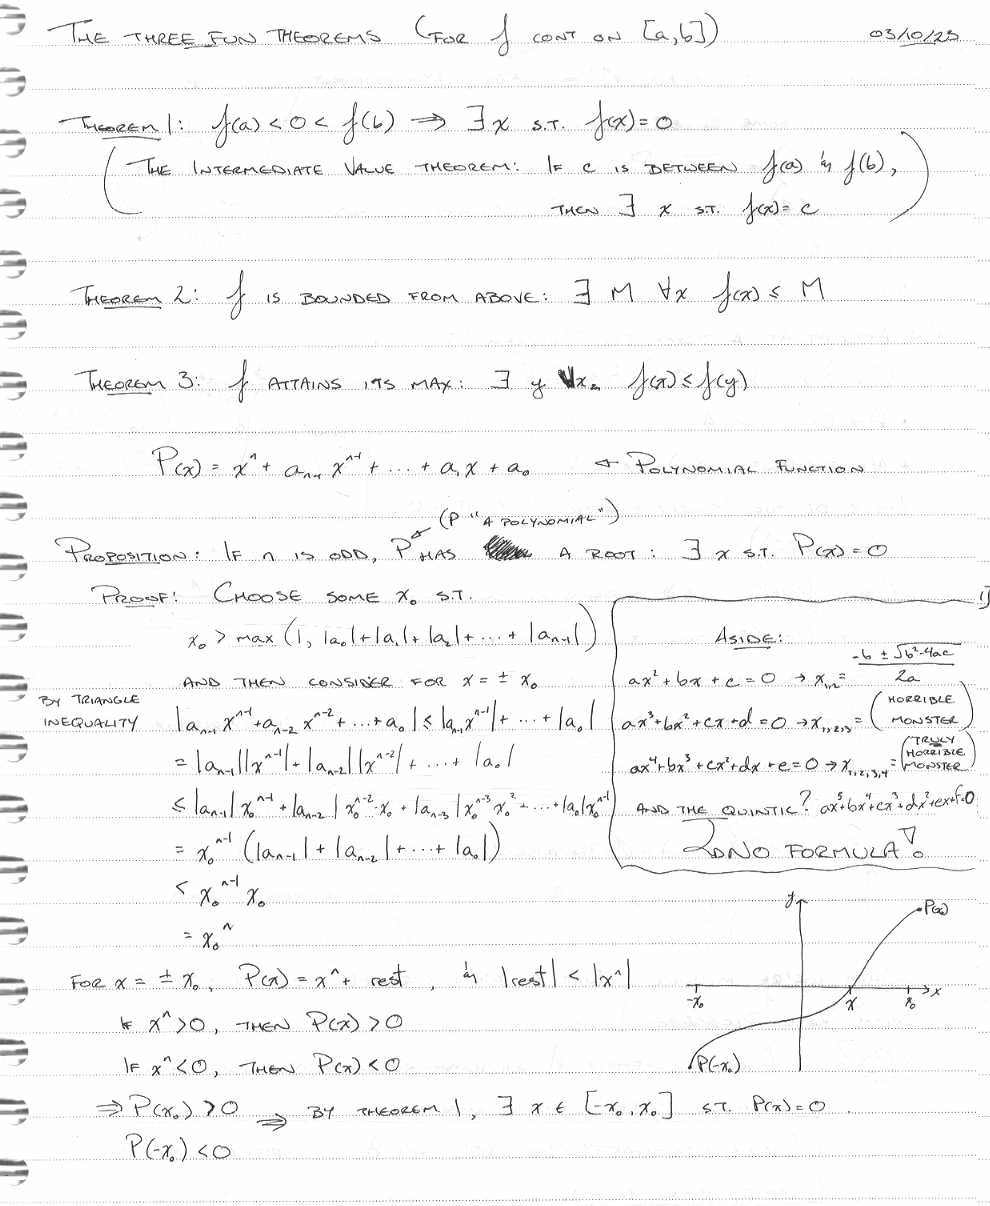 THE THREE FUN THEOREMS (FOR f CONT ON [a,b]) 03/10/23
THEOREM 1: f(a) < 0 < f(b) ⇒ ∃ x S.T. f(x) = 0
(THE INTERMEDIATE VALUE THEOREM: IF c IS BETWEEN f(a) & f(b),
THEN ∃ x S.T. f(x) = c)
THEOREM 2: f IS BOUNDED FROM ABOVE: ∃ M ∀x f(x) ≤ M
THEOREM 3: f ATTAINS ITS MAX: ∃ y ∀x f(x) ≤ f(y)
P(x) = xⁿ + aₙ₋₁ xⁿ⁻¹ + ... + a₁x + a₀ ← POLYNOMIAL FUNCTION
(P "A POLYNOMIAL")
PROPOSITION: IF n IS ODD, P HAS A ROOT: ∃ x S.T. P(x) = 0
PROOF: CHOOSE SOME x₀ S.T.
x₀ > max (1, |a₀|+|a₁|+|a₂|+...+|aₙ₋₁|)
AND THEN CONSIDER FOR x = ± x₀
BY TRIANGLE
INEQUALITY
|aₙ₋₁ xⁿ⁻¹ + aₙ₋₂ xⁿ⁻² + ... + a₀| ≤ |aₙ₋₁ xⁿ⁻¹| + ... + |a₀|
= |aₙ₋₁||xⁿ⁻¹| + |aₙ₋₂||xⁿ⁻²| + ... + |a₀|
≤ |aₙ₋₁| x₀ⁿ⁻¹ + |aₙ₋₂| x₀ⁿ⁻²·x₀ + |aₙ₋₃| x₀ⁿ⁻³ x₀² + ... + |a₀| x₀ⁿ⁻¹
= x₀ⁿ⁻¹ (|aₙ₋₁| + |aₙ₋₂| + ... + |a₀|)
< x₀ⁿ⁻¹ x₀
= x₀ⁿ
ASIDE:
ax² + bx + c = 0 → x₁,₂ = (-b ± √(b²-4ac)) / 2a
ax³+bx²+cx+d = 0 → x₁,₂,₃ = (HORRIBLE MONSTER)
ax⁴+bx³+cx²+dx+e = 0 → x₁,₂,₃,₄ = (TRULY HORRIBLE MONSTER)
AND THE QUINTIC? ax⁵+bx⁴+cx³+dx²+ex+f=0
NO FORMULA!
FOR x = ± x₀, P(x) = xⁿ + rest, & |rest| < |xⁿ|
IF xⁿ > 0, THEN P(x) > 0
IF xⁿ < 0, THEN P(x) < 0
⇒ P(x₀) > 0 ⇒ BY THEOREM 1, ∃ x ∈ [-x₀, x₀] S.T. P(x) = 0.
P(-x₀) < 0
y
P(x₀)
-x₀ x x₀ x
P(-x₀)